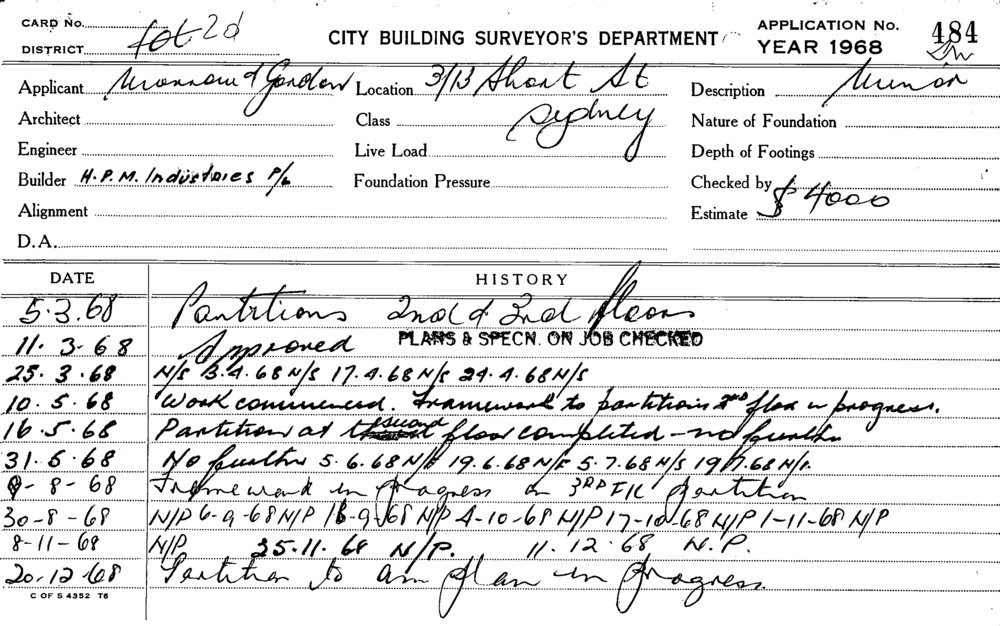 CARD No. Lot 2d CITY BUILDING SURVEYOR'S DEPARTMENT APPLICATION No. 484
DISTRICT YEAR 1968
Applicant Gordon Location 3/13 Short St Description Minor
Architect Class Sydney Nature of Foundation
Engineer Live Load Depth of Footings
Builder H.P.M. Industries P/L Foundation Pressure Checked by
Alignment Estimate $ 4000
D.A.
DATE HISTORY
5.3.68 Partitions 2nd & 3rd floors
11.3.68 Approved PLANS & SPECN. ON JOB CHECKED
25.3.68 N/S 3.4.68 N/S 17.4.68 N/S 24.4.68 N/S
10.5.68 Work commenced. Framework to partitions 2nd floor in progress.
16.5.68 Partition at second floor completed - no further
31.5.68 No further 5.6.68 N/F 19.6.68 N/F 5.7.68 N/S 19.7.68 N/P.
9-8-68 Framework in progress on 3RD FlR partition
30-8-68 N/P 6-9-68 N/P 18-9-68 N/P 4-10-68 N/P 17-10-68 N/P 1-11-68 N/P
8-11-68 N/P 25.11.68 N/P. 11.12.68 N.P.
20.12.68 Partition to plan in progress.
C OF S 4352 T6